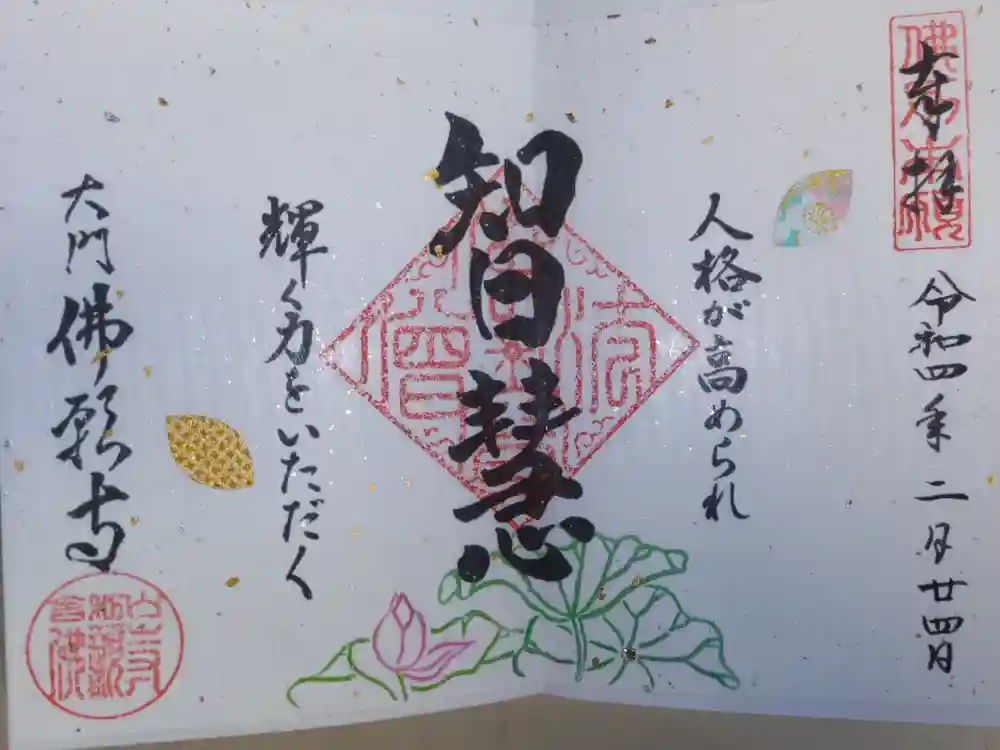 奉拝
令和四年二月廿四日
人格が高められ
智慧
輝く力をいただく
大門佛願寺